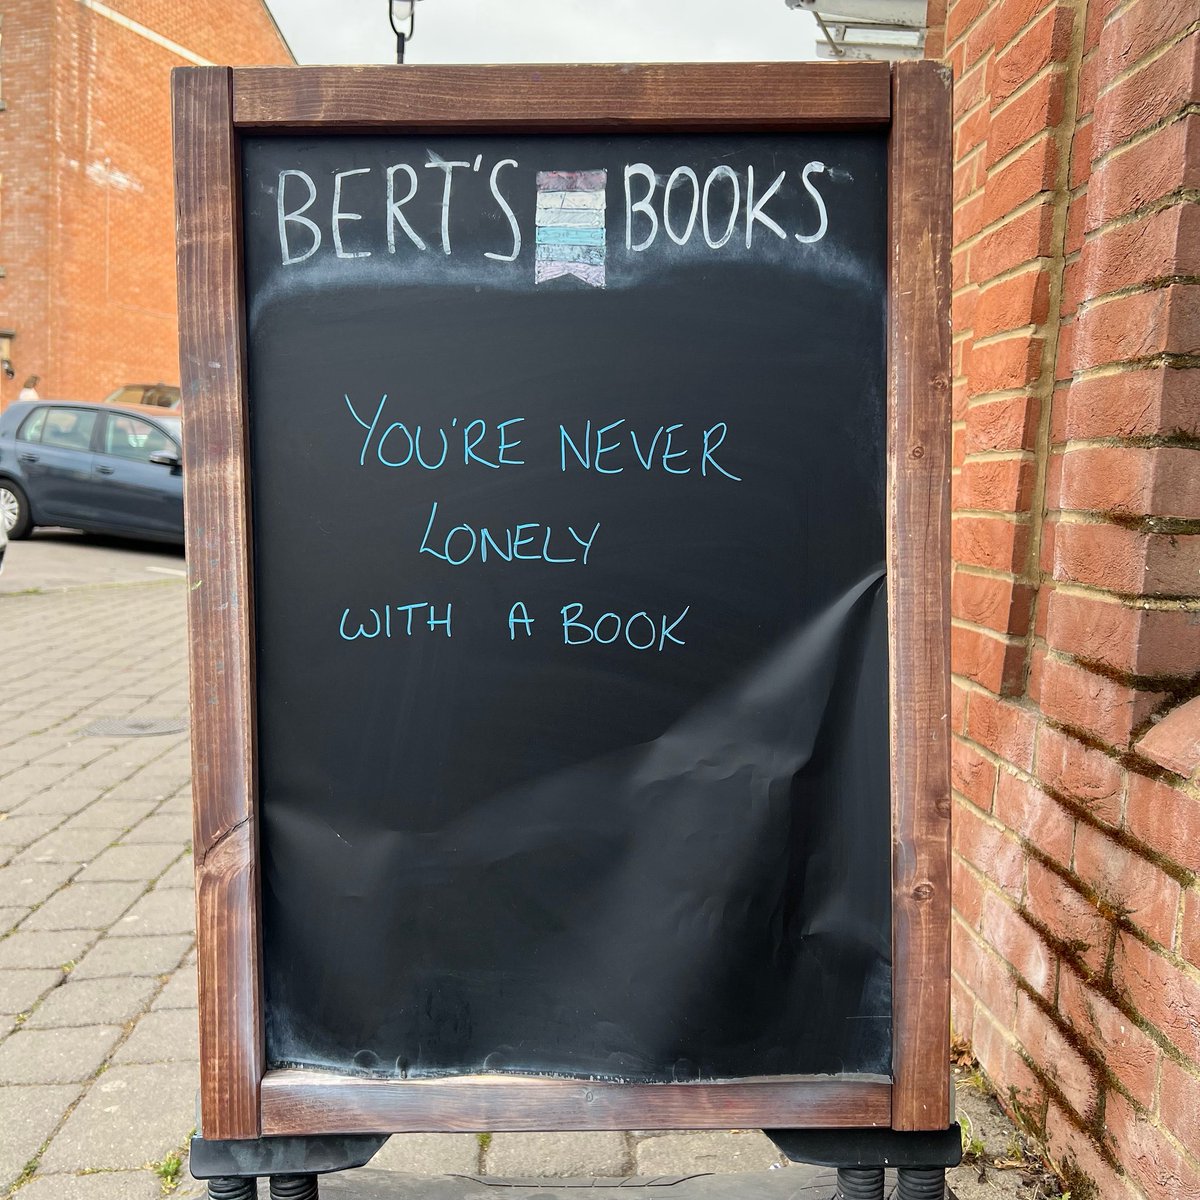 BERT'S BOOKS
YOU'RE NEVER
LONELY
WITH A BOOK